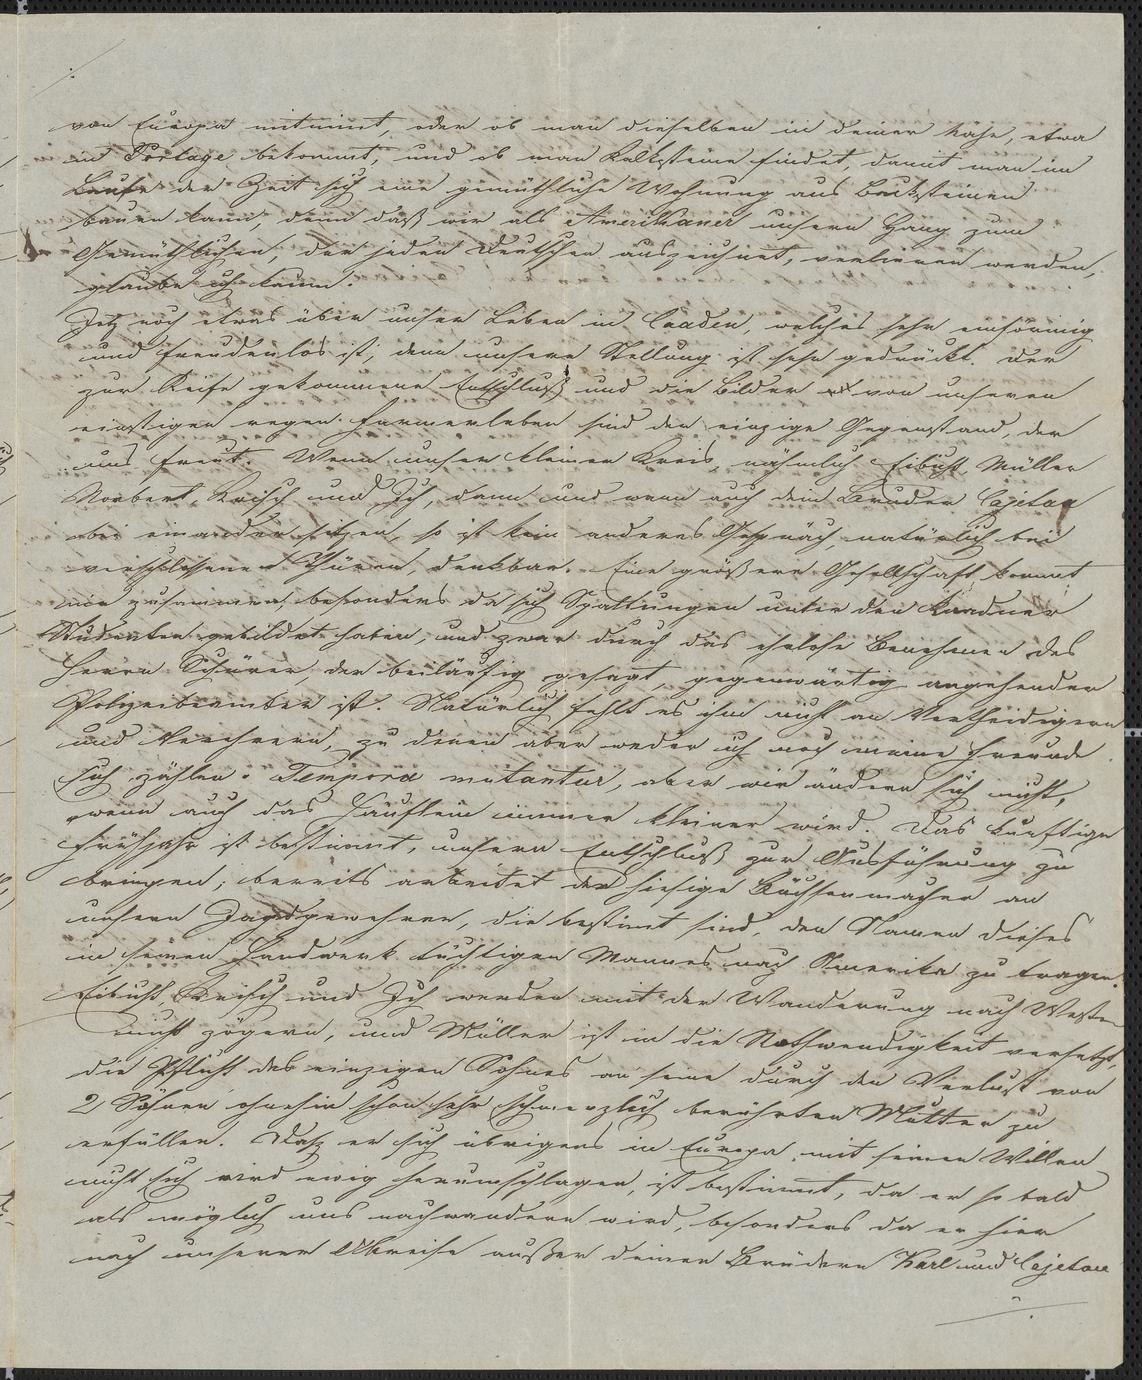 von Europa mitnimt, oder ob man dieselben in deiner Nähe, etwa
in Portage bekommt, und ob man Kalksteine findet, damit man im
Laufe der Zeit sich eine gemüthliche Wohnung aus Backsteinen
bauen kann, denn daß wir als Amerikaner unsern Hang zum
Gemüthlichen, der jeden Deutschen auszeichnet, verlieren werden,
glaube ich kaum.
Jetz noch etwas über unser Leben in Caaden, welches sehr einförmig
und freudenlos ist, denn unsere Stellung ist sehr gedrückt. Der
zur Reife gekommene Entschluß und die Bilder von unseren
einstigen regen Farmerleben sind der einzige Gegenstand, der
uns freut. Wenn unser kleiner Kreis, nähmlich Eibuhl, Müller
Norbert, Krisch und Ich, dann und wann auch dein Bruder Cajetan
bei einander sitzen, so ist kein anderes Gespräch, natürlich bei
verschlossenen Thüren, denkbar. Eine größere Gesellschaft kommt
nie zusammen, besonders da sich Spaltungen unter den Kaadner
Studenten gebildet haben, und zwar durch das ehrlose Benehmen des
Herrn Schürer, der beiläufig gesagt, gegenwärtig angehender
Polizeibeamter ist. Natürlich fehlt es ihm nicht an Vertheidigern
und Verehrern, zu denen aber weder ich noch meine Freunde
sich zählen. Tempora mutantur, aber wir ändern sich nicht,
wenn auch das Häuflein immer kleiner wird. Das künftige
Frühjahr ist bestimmt, unsern Entschluß zur Ausführung zu
bringen; bereits arbeitet der hiesige Büchsenmacher an
unsern Jagdgewehren, die bestimt sind, den Namen dieses
in seinen Handwerk tüchtigen Mannes nach Amerika zu tragen.
Eibuhl, Krisch und Ich werden mit der Wanderung nach Westen
nicht zögern, und Müller ist in die Nothwendigkeit versetzt,
die Pflicht des einzigen Sohnes an seine durch den Verlust von
2 Söhnen ohnehin schon sehr schmerzlich berührten Mutter zu
erfüllen. Dasz er sich übrigens in Europa mit seinen Willen
nicht sich wird ewig herumschlagen, ist bestimmt, da er so bald
als möglich uns nachwandern wird, besonders da er hier
nach unserer Abreise außer deinen Brüdern Karl und Cajetan